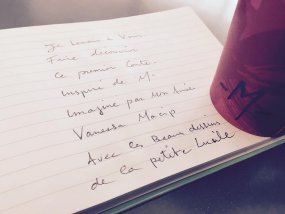 Je tenais à Vous
Faire découvrir
Ce premier Conte.
Inspiré de Mi
Imaginé par Mon Amie
Vanessa
Avec les Beaux dessins
de la petite Lucile